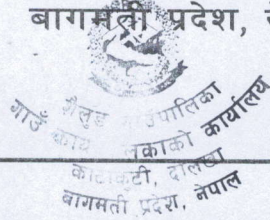 बागमती प्रदेश,
शैलुङ गाउँपालिका
गाउँ कार्य लिकाको कार्यालय
दोलखा
बागमती प्रदेश, नेपाल